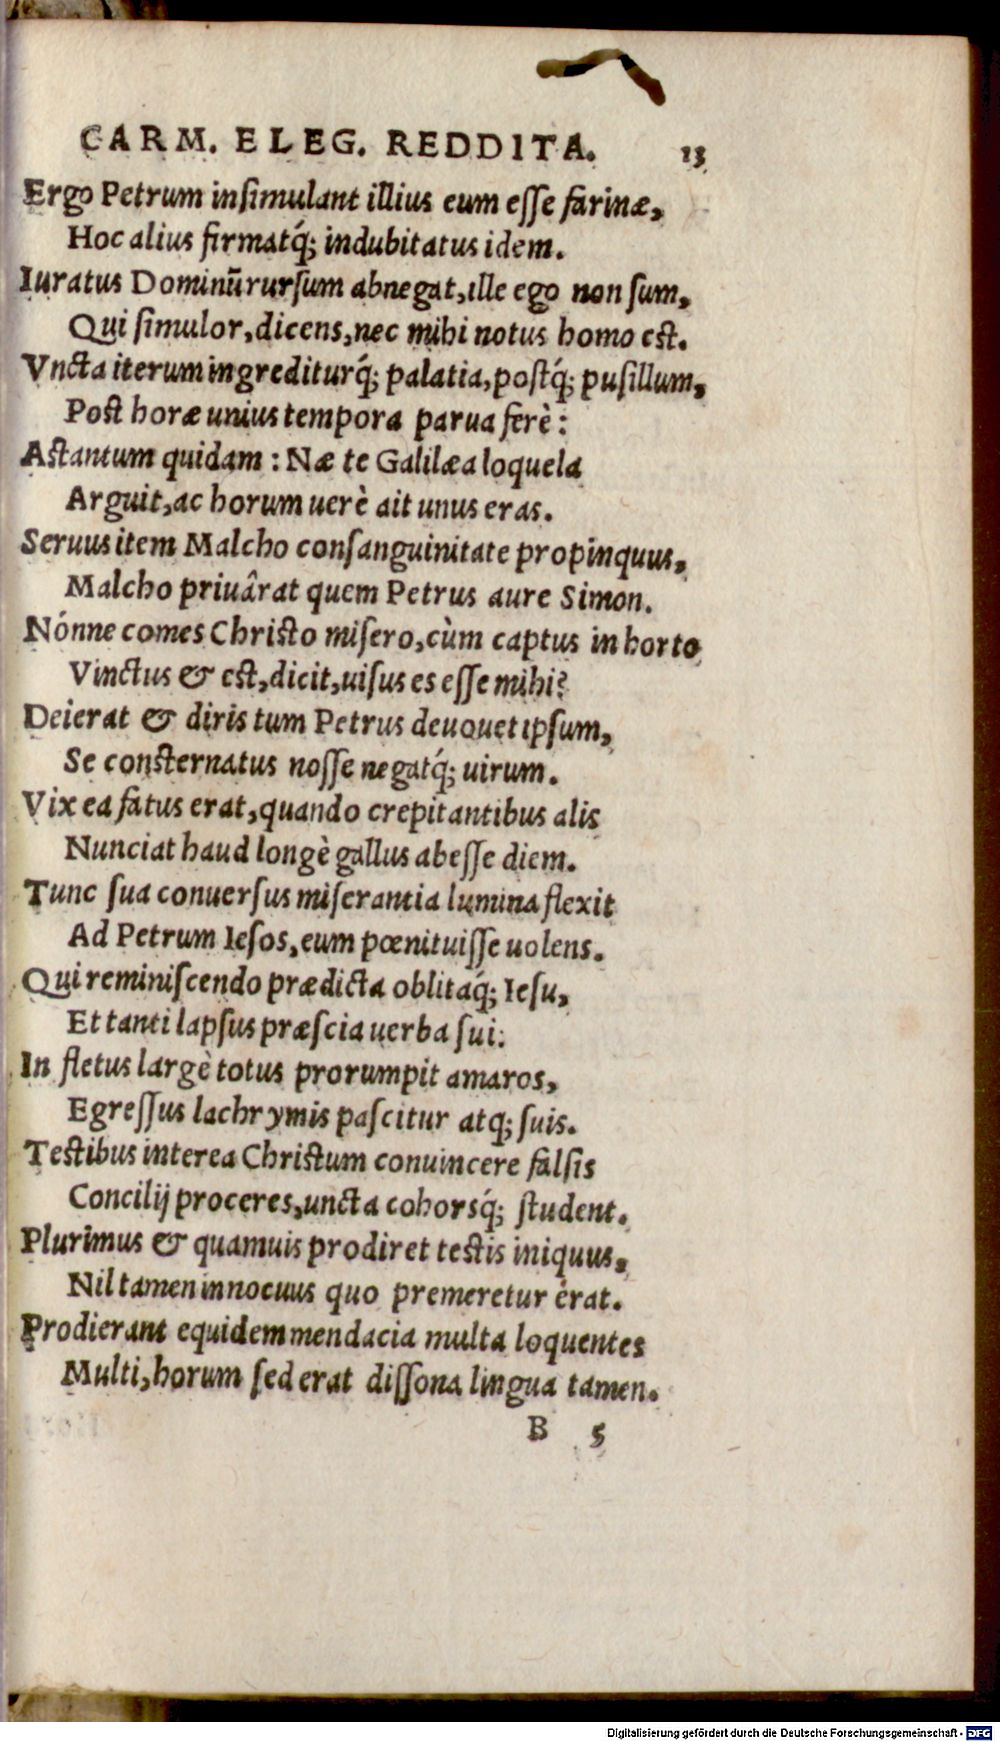 CARM. ELEG. REDDITA. 13
Ergo Petrum insimulant illius eum esse farinæ,
Hoc alius firmatq́; indubitatus idem.
Iuratus Dominũ rursum abnegat, ille ego non sum,
Qui simulor, dicens, nec mihi notus homo est.
Vncta iterum ingrediturq́; palatia, postq́; pusillum,
Post horæ unius tempora parua ferè:
Astantum quidam: Næ te Galilæa loquela
Arguit, ac horum uerè ait unus eras.
Seruus item Malcho consanguinitate propinquus,
Malcho priuârat quem Petrus aure Simon.
Nónne comes Christo misero, cùm captus in horto
Vinctus & est, dicit, uisus es esse mihi?
Deierat & diris tum Petrus deuouet ipsum,
Se consternatus nosse negatq́; uirum.
Vix ea fatus erat, quando crepitantibus alis
Nunciat haud longè gallus abesse diem.
Tunc sua conuersus miserantia lumina flexit
Ad Petrum Iesos, eum pœnituisse uolens.
Qui reminiscendo prædicta oblitaq́; Iesu,
Et tanti lapsus præscia uerba sui:
In fletus largè totus prorumpit amaros,
Egressus lachrymis pascitur atq; suis.
Testibus interea Christum conuincere falsis
Concilij proceres, uncta cohorsq́; student.
Plurimus & quamuis prodiret testis iniquus,
Nil tamen innocuus quo premeretur erat.
Prodierant equidem mendacia multa loquentes
Multi, horum sed erat dissona lingua tamen.
B 5
Digitalisierung gefördert durch die Deutsche Forschungsgemeinschaft - DFG